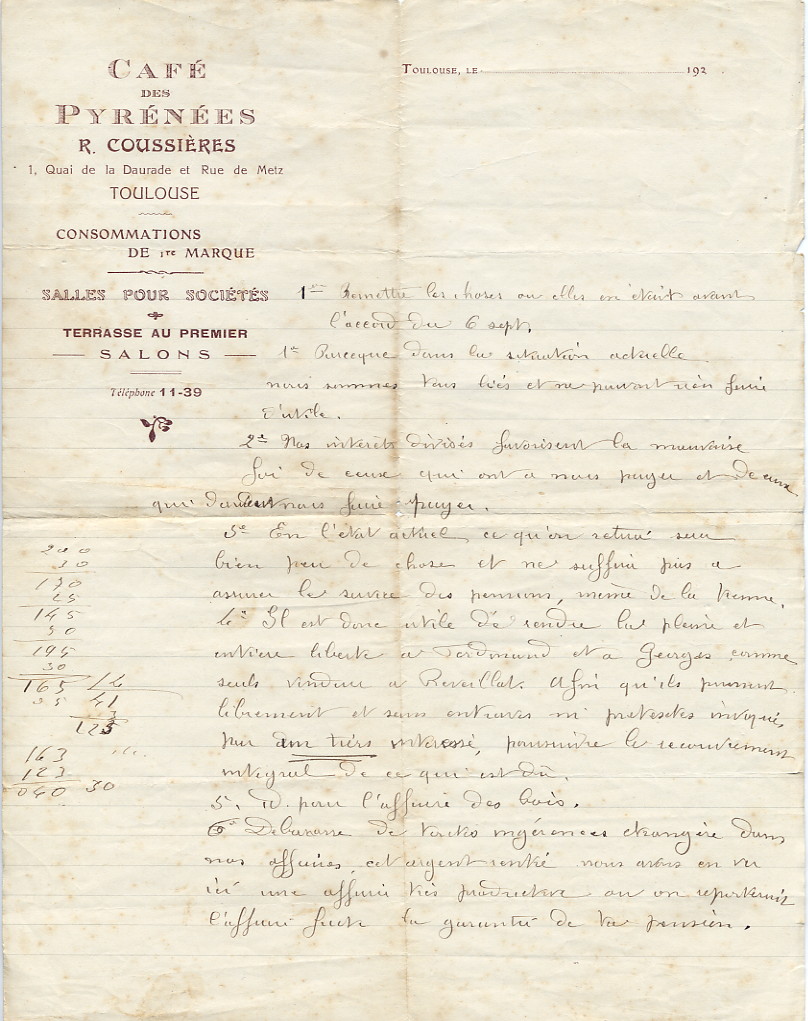 CAFÉ
DES
PYRÉNÉES
R. COUSSIÈRES
1, Quai de la Daurade et Rue de Metz
TOULOUSE
CONSOMMATIONS
DE 1re MARQUE
SALLES POUR SOCIÉTÉS
TERRASSE AU PREMIER
SALONS
Téléphone 11-39
TOULOUSE, LE 192
Remettre les choses ou elles en était avant
l'accord du 6 sept.
1e Parceque dans la situation actuelle
nous sommes tous liés et ne pouvont rien faire
d'utile.
2e Nos intérêts divisés favorisent la mauvaise
foi de ceux qui ont a nous payer et de ceux
qui doivent nous faire payer.
3e En l'état actuel ce qu'on retire sera
bien peu de chose et ne suffira pas a
assurer le service des pensions, même de la tienne.
4e Il est donc utile de rendre la pleine et
entière liberté a Ferdinand et a Georges comme
seuls vendeur a Reveillat. Afin qu'ils puissent
librement et sans entraves ni pretextes invoqués
par un tiers interessé, poursuivre le recouvrement
integral de ce qui est dû.
5. Id. pour l'affaire des bois.
6e Debarassé de toutes ingérences etrangère dans
nos affaires, cet argent rentré nous avons en vu
ici une affaire très productive ou on reporterait
l'affaire faite la garantie de ta pension.
200
30
170
25
145
50
195
30
165 14
25 41
3
125
163
123
040 30